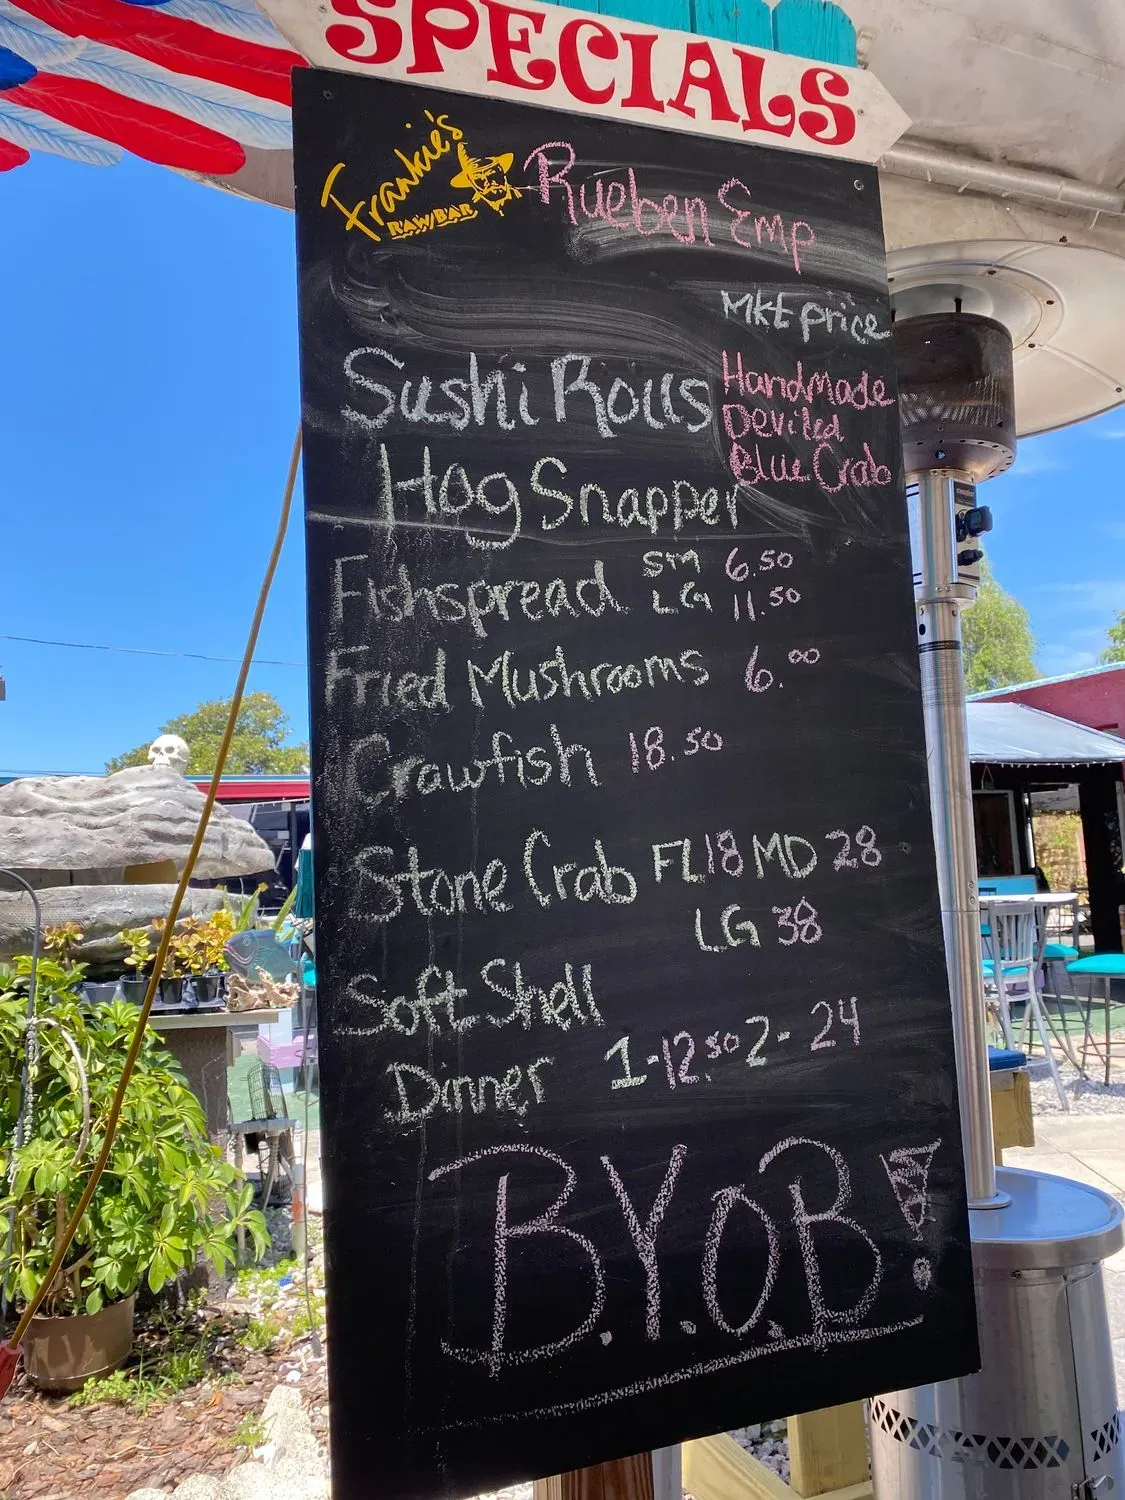 SPECIALS
Frankie's
RAW BAR
Rueben Emp
Mkt price
Sushi Rolls
Handmade
Deviled
Blue Crab
Hog Snapper
Fishspread SM 6.50
LG 11.50
Fried Mushrooms 6.00
Crawfish 18.50
Stone Crab FL 18 MD 28
LG 38
Soft Shell
Dinner 1-12.50 2-24
B.Y.O.B!